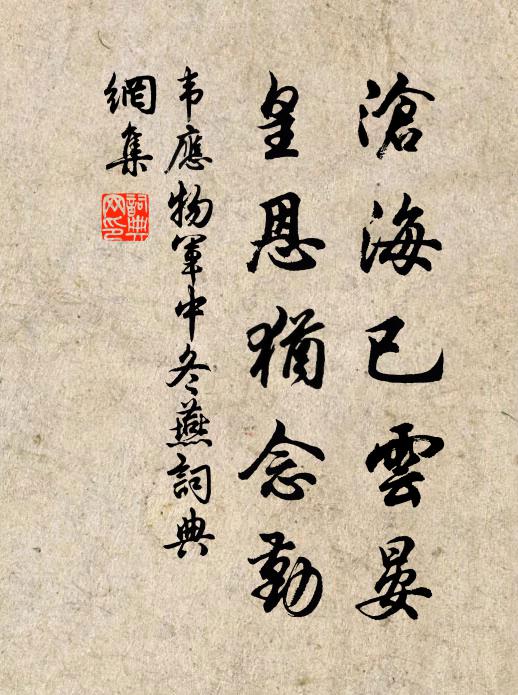 滄海已雲晏
皇恩猶念勤
韦應物軍中冬燕詞典
網集
詞典網印